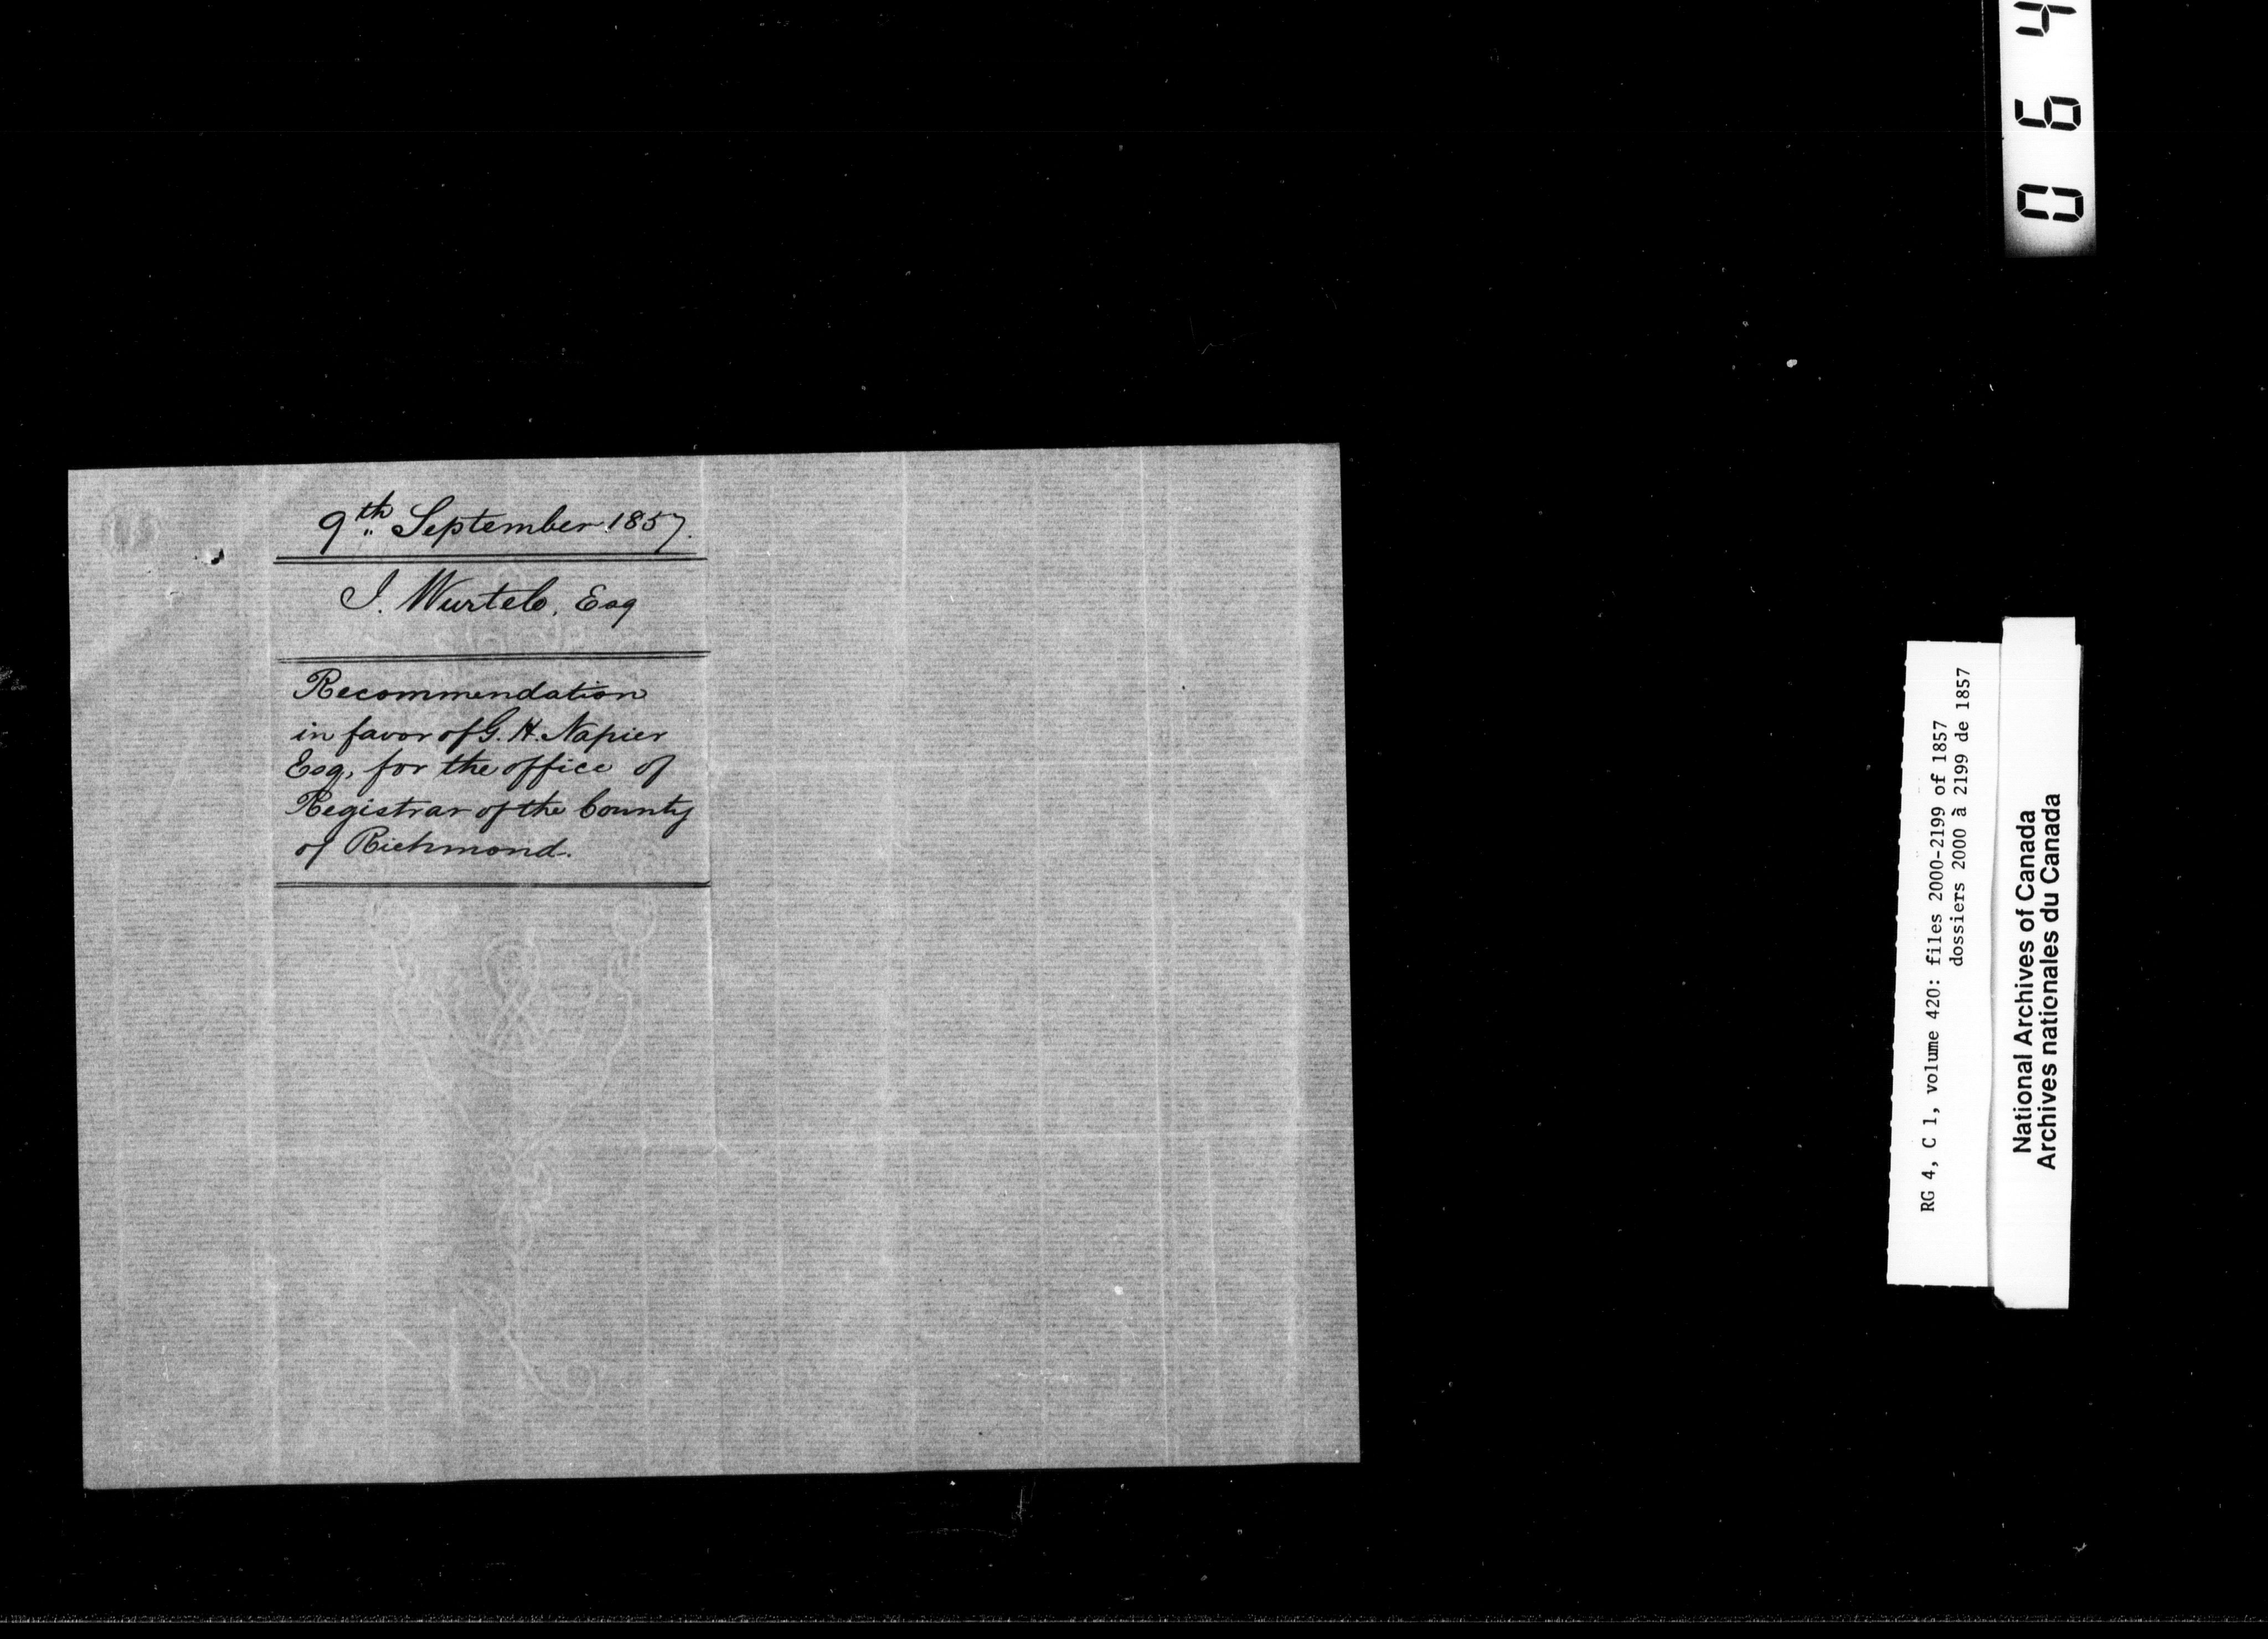 9th September 1857.
J. Wurtele, Esq
Recommendation
in favor of G. H. Napier
Esq, for the office of
Registrar of the County
of Richmond.
RG 4, C 1, volume 420: files 2000-2199 of 1857
dossiers 2000 à 2199 de 1857
National Archives of Canada
Archives nationales du Canada
0 6 4